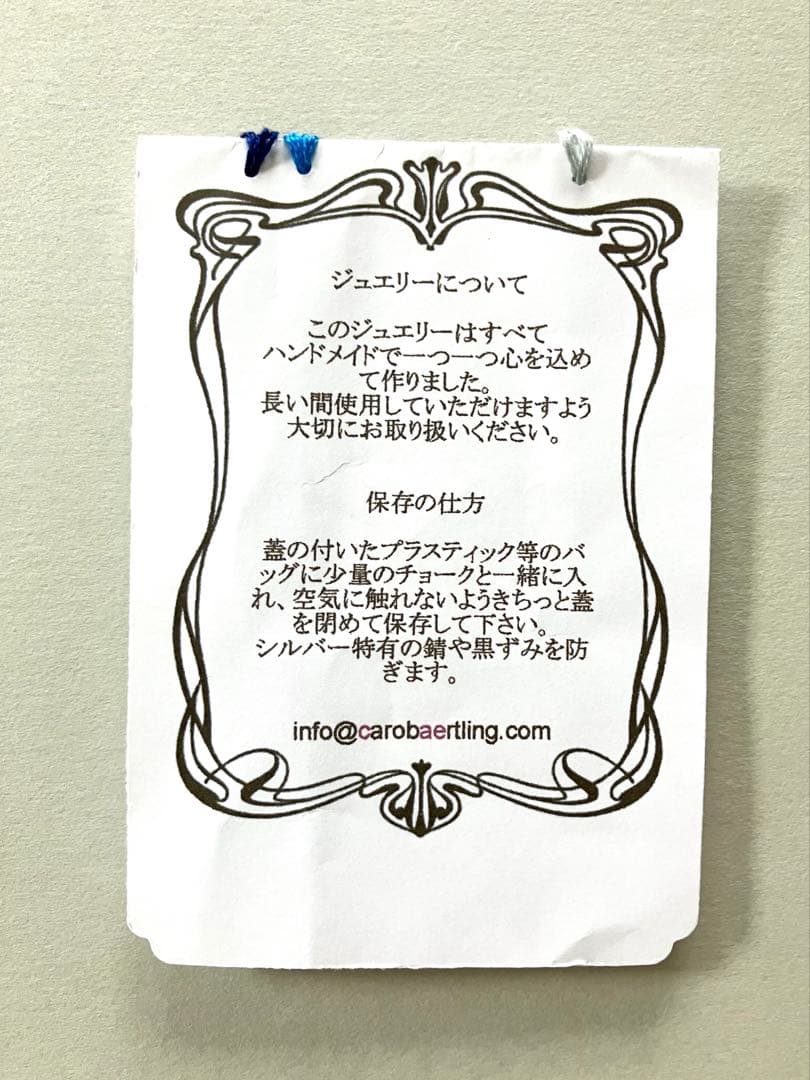 ジュエリーについて
このジュエリーはすべて
ハンドメイドで一つ一つ心を込め
て作りました。
長い間使用していただけますよう
大切にお取り扱いください。
保存の仕方
蓋の付いたプラスティック等のバ
ッグに少量のチョークと一緒に入
れ、空気に触れないようきちっと蓋
を閉めて保存して下さい。
シルバー特有の錆や黒ずみを防
ぎます。
info@carobaertling.com